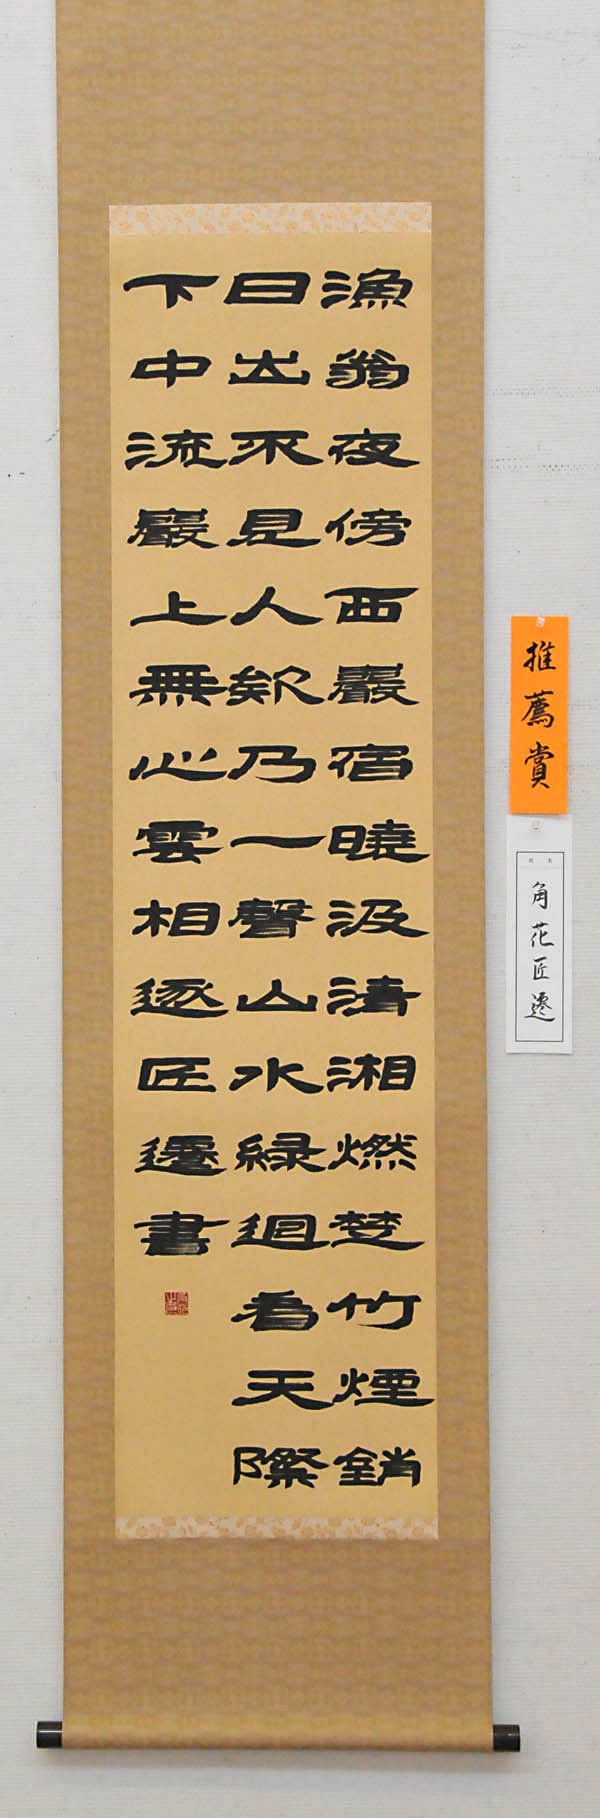 漁翁夜傍西巖宿曉汲清湘燃楚竹煙銷
日出不見人欸乃一聲山水綠迴看天際
下中流巖上無心雲相逐匠遷書
推薦賞
氏名
角花匠遷